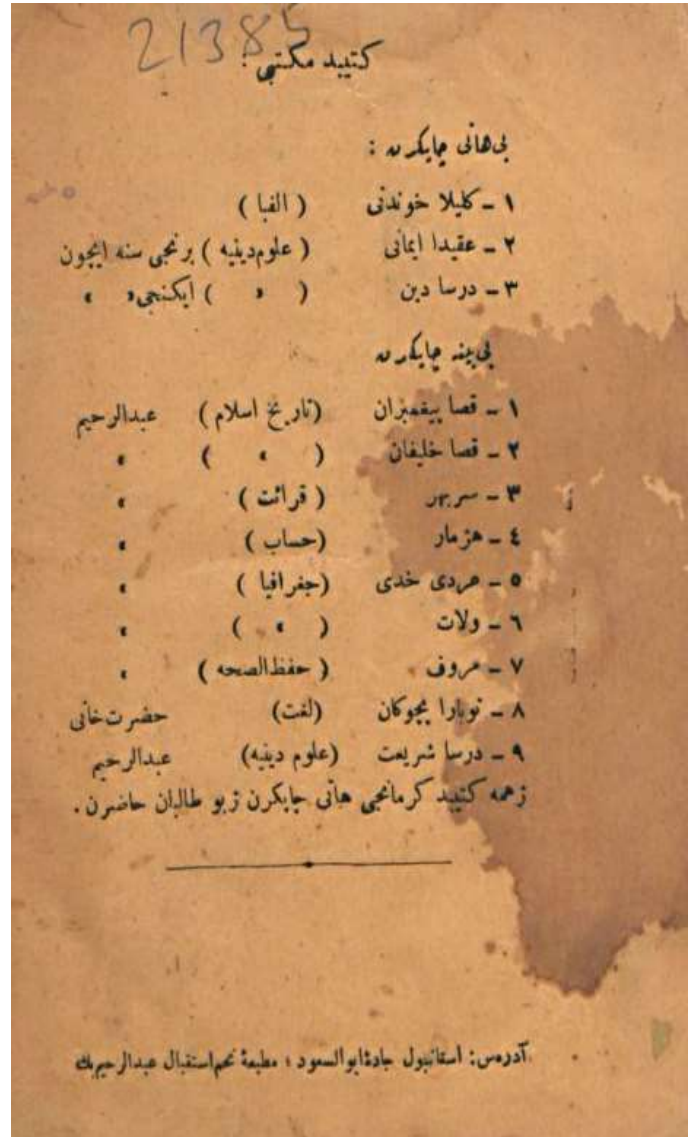 21385
كتيبد مكتبى :
بى هاتى چاپكرن :
١ ـ كليلا خوندنى ( الفبا )
٢ ـ عقيدا ايمانى ( علوم دينيه ) برنجى سنه ايچون
٣ ـ درسا دين ( » ) ايكنجى » »
بى بينه چاپكرن
١ ـ قصا پيغمبران (تاريخ اسلام) عبدالرحيم
٢ ـ قصا خليفان ( » ) »
٣ ـ سربهر ( قرائت ) »
٤ ـ هژمار (حساب) »
٥ ـ هردى خدى (جغرافيا) »
٦ ـ ولات ( » ) »
٧ ـ مروف ( حفظ الصحه ) »
٨ ـ نوبارا بچوكان (لغت) حضرت خانى
٩ ـ درسا شريعت (علوم دينيه) عبدالرحيم
ژهمه كتيبد كرمانجى هاتى چاپكرن ژبو طالبان حاضرن .
آدرەس : استانبول جادۀ ابوالسعود ؛ مطبعۀ نجم استقبال عبدالرحيم بك